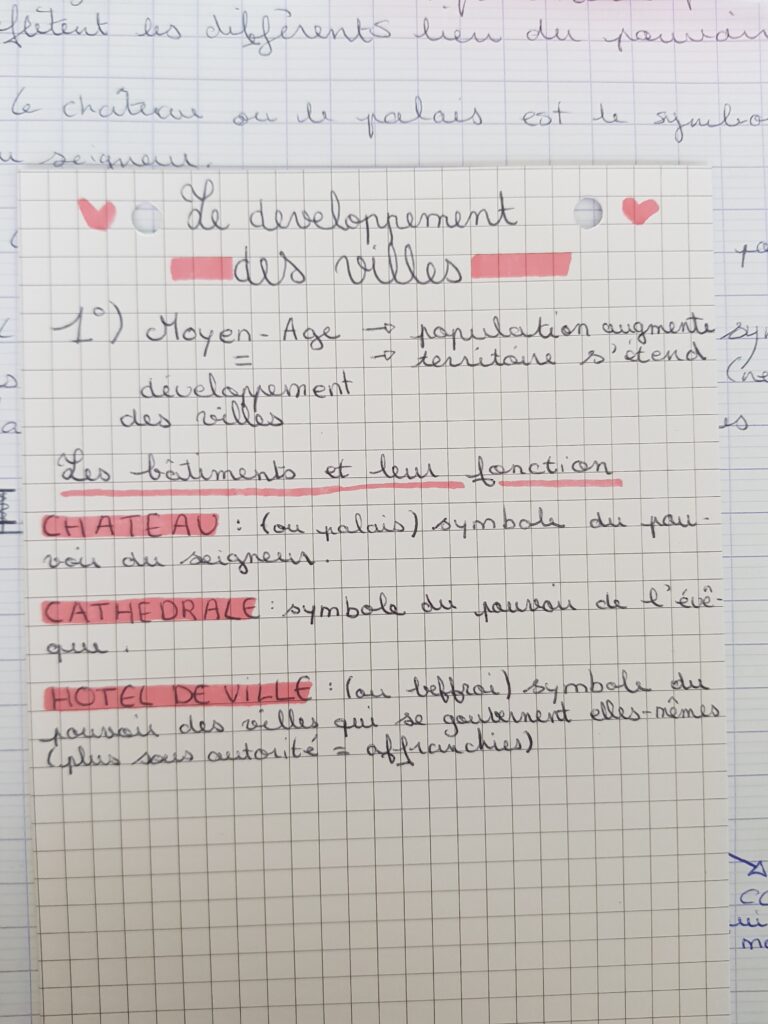 flètent les différents lieu du pouvoir
Le château ou le palais est le symbo
u seigneur.
Le developpement
des villes
1°) Moyen-Age → population augmente
= → territoire s'étend
développement
des villes
Les bâtiments et leur fonction
CHATEAU : (ou palais) symbole du pou-
voir du seigneur.
CATHEDRALE : symbole du pouvoir de l'évê-
que.
HOTEL DE VILLE : (ou beffroi) symbole du
pouvoir des villes qui se gouvernent elles-mêmes
(plus sous autorité = affranchies)